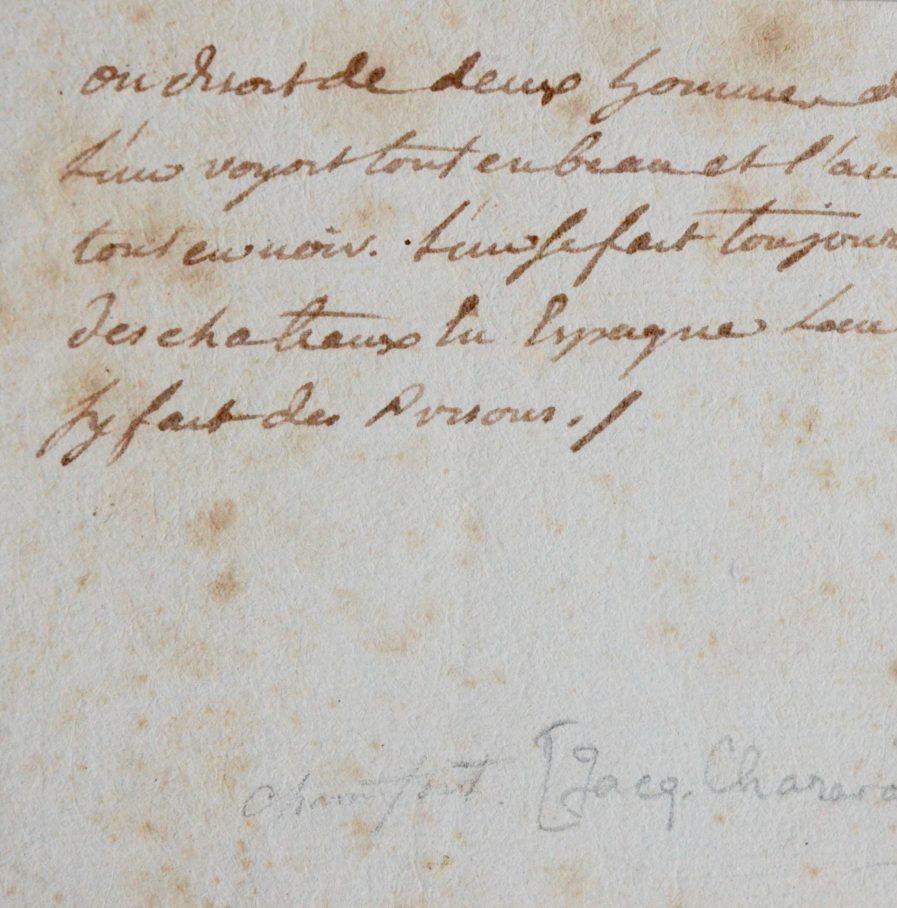 on disoit de deux hommes d
L'un voyoit tout en beau et l'au
tout en noir. L'un se fait toujour
des chateaux En Espagne Lau
sy fait des Prisons./
Chamfort. [Jacq. Charava